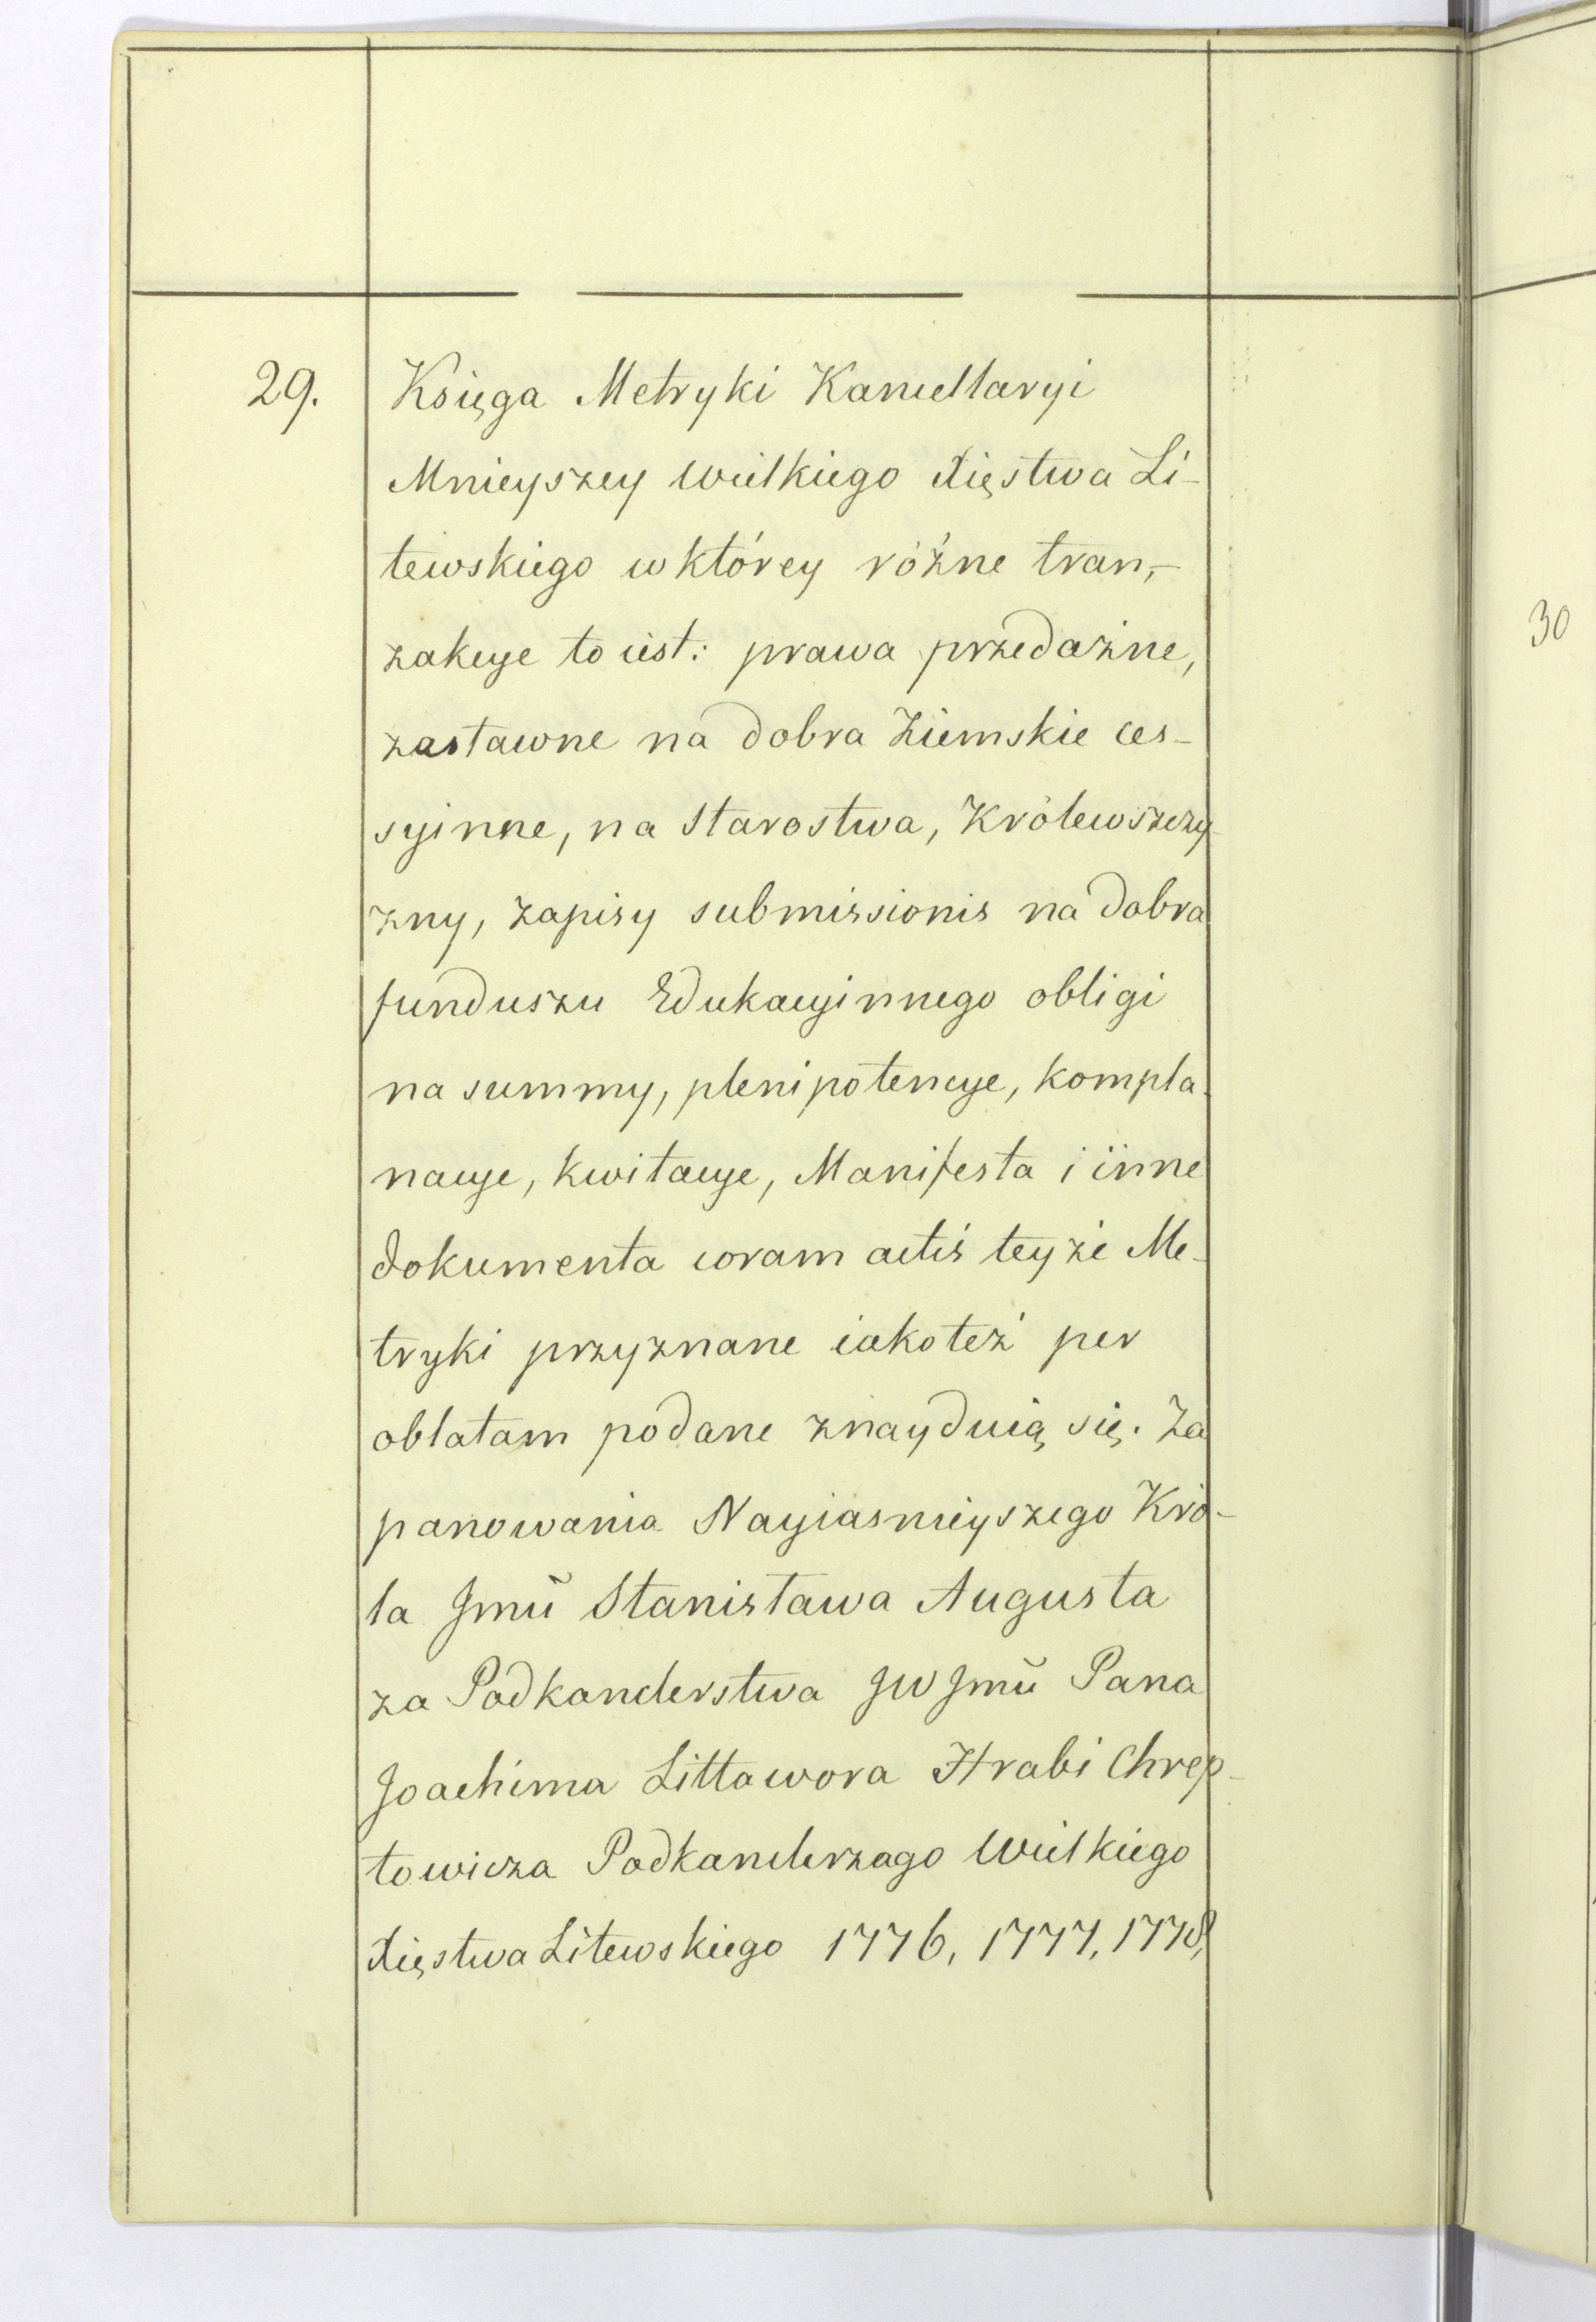 29. Księga Metryki Kancellaryi
Mnieyszey Wielkiego Xięstwa Li-
tewskiego w którey różne tran,-
zakcye to iest: prawa przedażne,
zastawne na dobra Ziemskie ces-
syinne, na Starostwa, Królewszczy-
zny, zapisy submissionis na dobra
funduszu Edukacyinnego obligi
na summy, plenipotencye, kompla-
nacye, kwitacye, Manifesta i inne
dokumenta coram actis teyże Me-
tryki przyznane iako też per
oblatam podane znayduią się. Za
panowania Nayiasnieyszego Kró-
la Jmũ Stanisława Augusta
za Podkanclerstwa JW Jmũ Pana
Joachima Littawora Hrabi Chrep-
towicza Podkanclerzago Wielkiego
Xięstwa Litewskiego 1776, 1777, 1778,
30